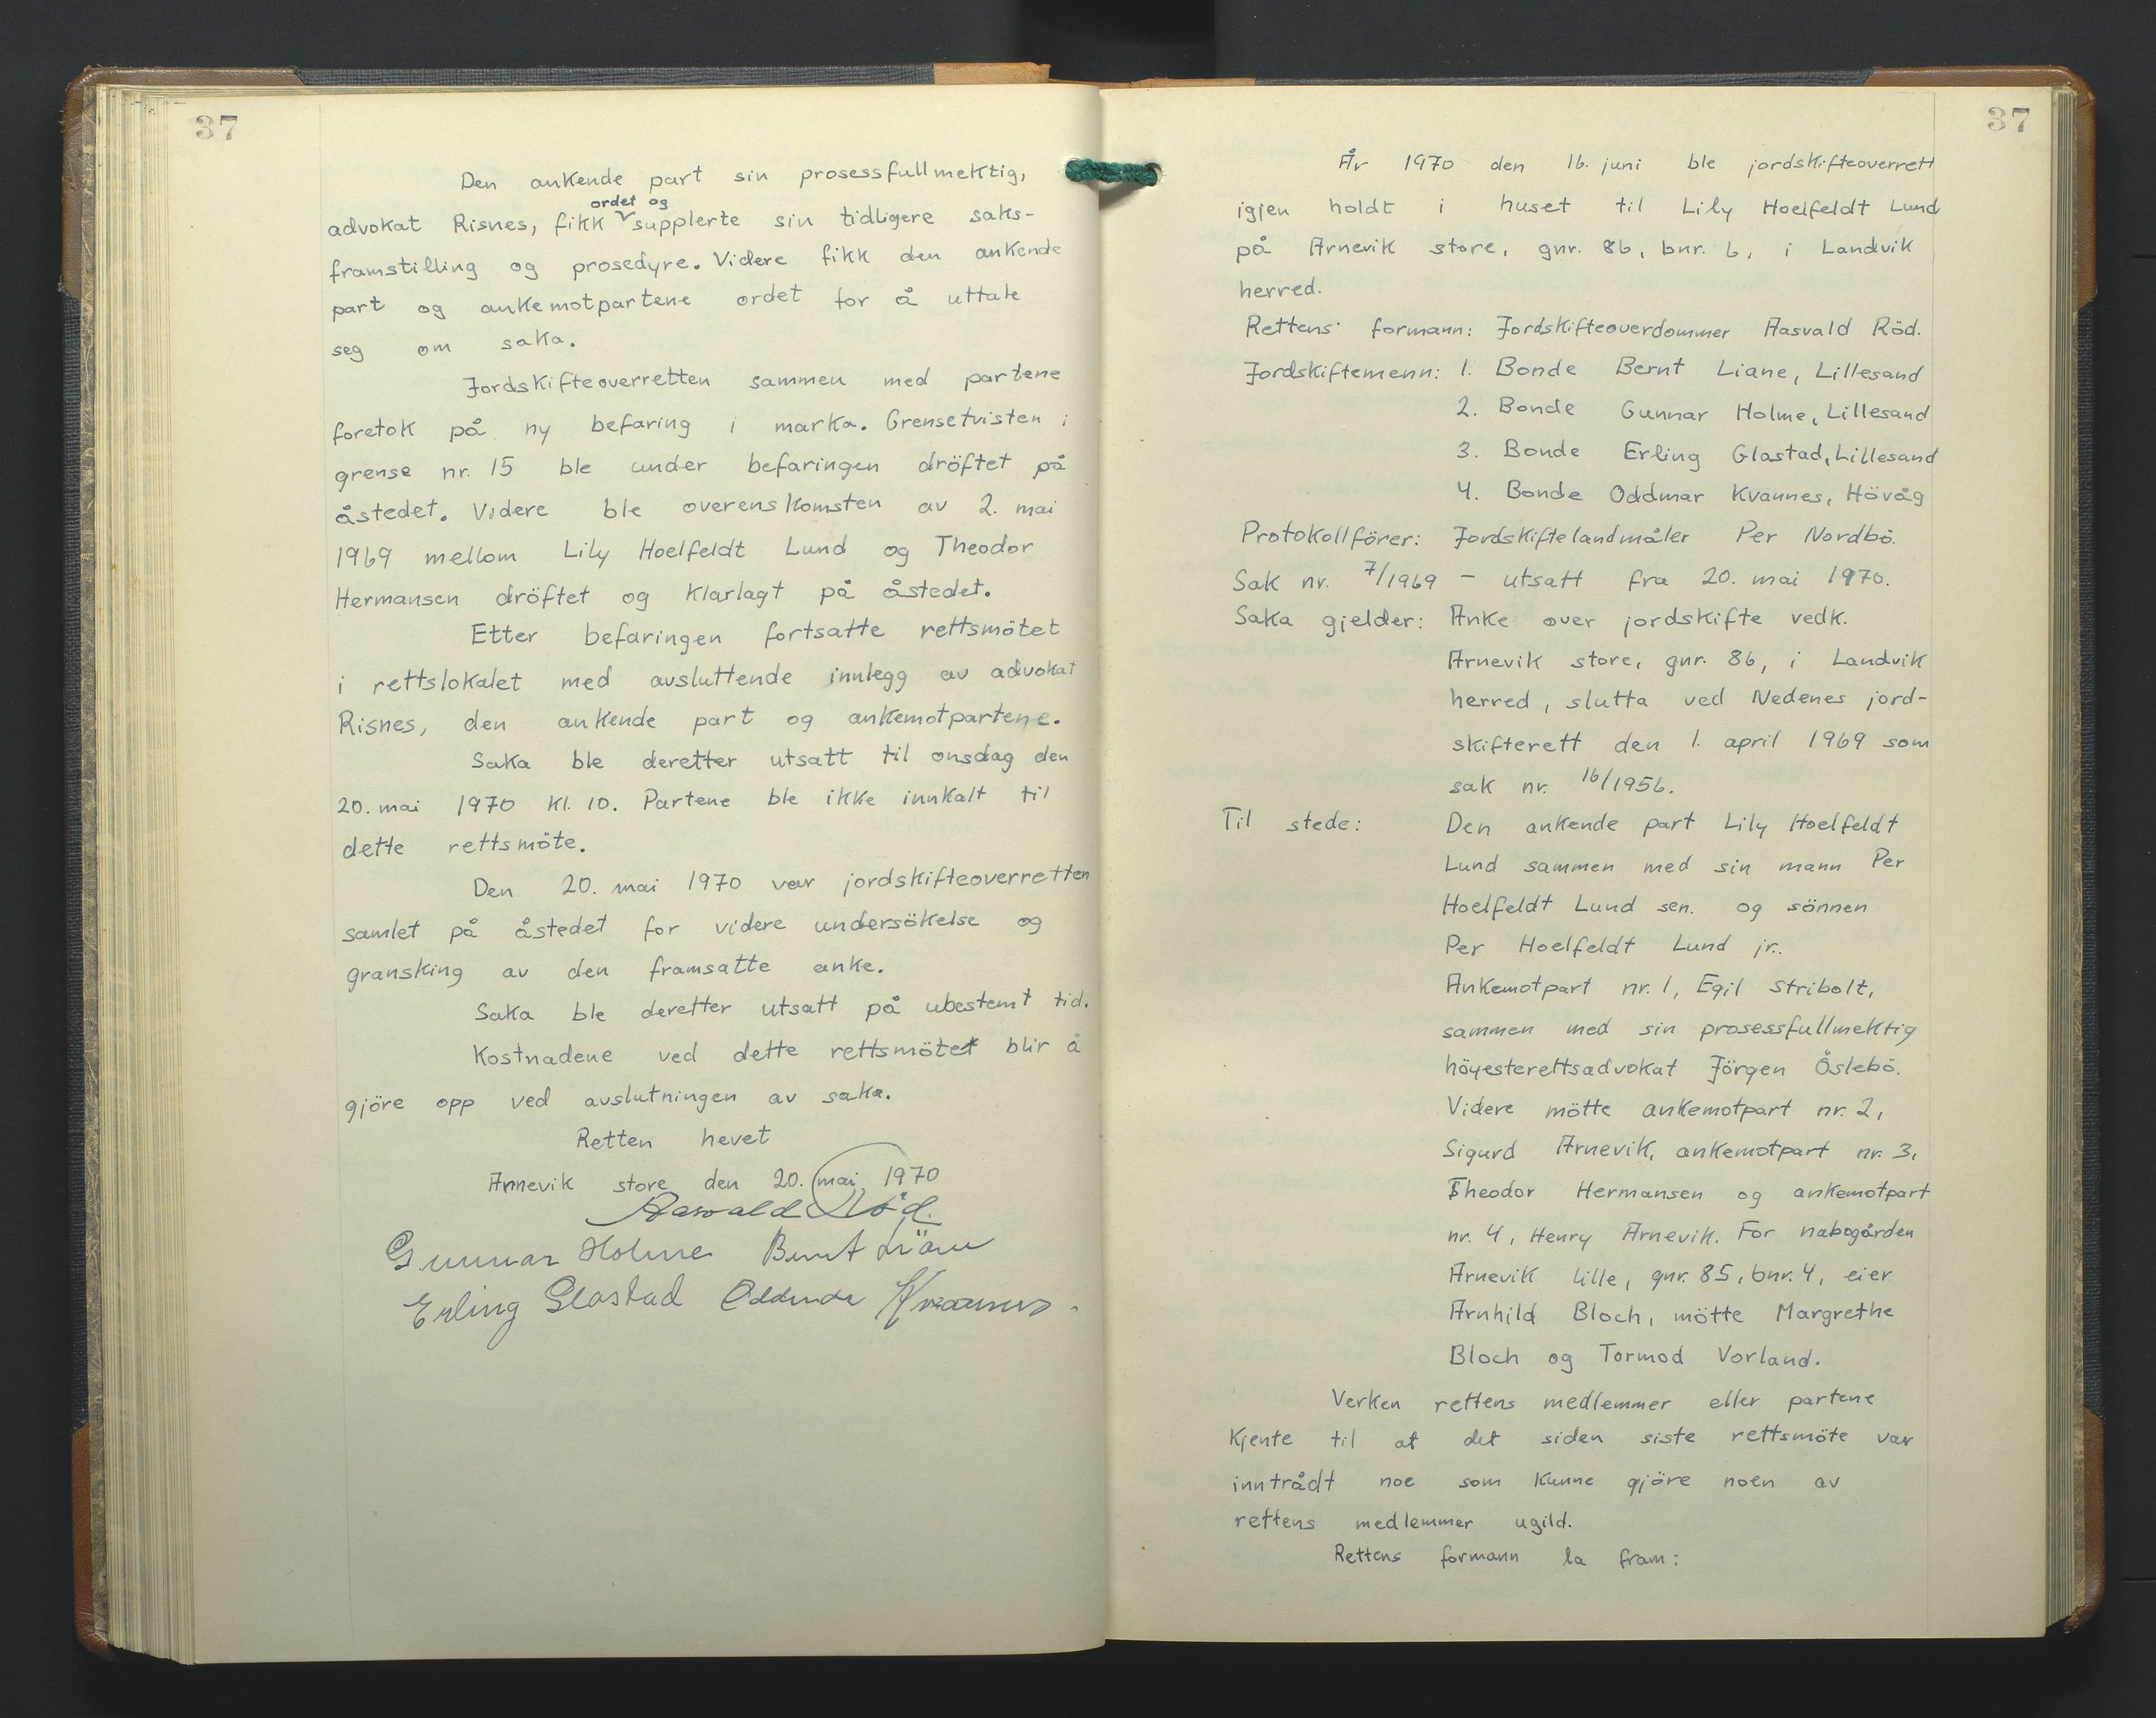 37
Den ankende part sin prosessfullmektig,
ordet og
advokat Risnes, fikk supplerte sin tidligere saks-
framstilling og prosedyre. Videre fikk den ankende
part og ankemotpartene ordet for å uttale
seg om saka.
Jordskifteoverretten sammen med partene
foretok på ny befaring i marka. Grensetvisten i
grense nr. 15 ble under befaringen dröftet på
åstedet. Videre ble overenskomsten av 2. mai
1969 mellom Lily Hoelfeldt Lund og Theodor
Hermansen dröftet og klarlagt på åstedet.
Etter befaringen fortsatte rettsmötet
i rettslokalet med avsluttende innlegg av advokat
Risnes, den ankende part og ankemotpartene.
Saka ble deretter utsatt til onsdag den
20. mai 1970 kl. 10. Partene ble ikke innkalt til
dette rettsmöte.
Den 20. mai 1970 var jordskifteoverretten
samlet på åstedet for videre undersökelse og
gransking av den framsatte anke.
Saka ble deretter utsatt på ubestemt tid.
Kostnadene ved dette rettsmötet blir å
gjöre opp ved avslutningen av saka.
Retten hevet
Arnevik store den 20. mai 1970
Aasvald Röd.
Gunnar Holme Bernt Liane
Erling Glastad Oddmar Kvannes.
37
År 1970 den 16. juni ble jordskifteoverrett
igjen holdt i huset til Lily Hoelfeldt Lund
på Arnevik store, gnr. 86, bnr. 6, i Landvik
herred.
Rettens formann: Jordskifteoverdommer Aasvald Röd.
Jordskiftemenn: 1. Bonde Bernt Liane, Lillesand
2. Bonde Gunnar Holme, Lillesand
3. Bonde Erling Glastad, Lillesand
4. Bonde Oddmar Kvannes, Hövåg
Protokollförer: Jordskiftelandmåler Per Nordbö.
Sak nr. 7/1969 - utsatt fra 20. mai 1970.
Saka gjelder: Anke over jordskifte vedk.
Arnevik store, gnr. 86, i Landvik
herred, slutta ved Nedenes jord-
skifterett den 1. april 1969 som
sak nr. 16/1956.
Til stede: Den ankende part Lily Hoelfeldt
Lund sammen med sin mann Per
Hoelfeldt Lund sen. og sönnen
Per Hoelfeldt Lund jr.
Ankemotpart nr. 1, Egil Stribolt,
sammen med sin prosessfullmektig
höyesterettsadvokat Jörgen Öslebö.
Videre mötte ankemotpart nr. 2,
Sigurd Arnevik, ankemotpart nr. 3,
Theodor Hermansen og ankemotpart
nr. 4, Henry Arnevik. For nabogården
Arnevik lille, gnr. 85, bnr. 4, eier
Arnhild Bloch, mötte Margrethe
Bloch og Tormod Vorland.
Verken rettens medlemmer eller partene
kjente til at det siden siste rettsmöte var
inntrådt noe som kunne gjöre noen av
rettens medlemmer ugild.
Rettens formann la fram: